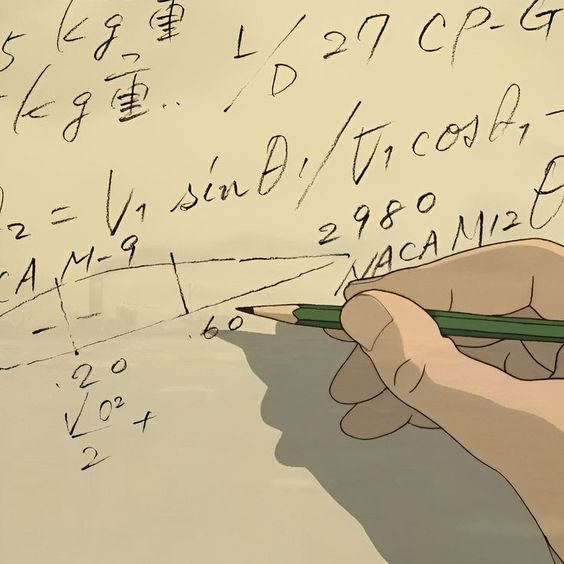 5 kg重
kg重.. L/D 27 CP-G
2 = V₁ sinθ₁/V₁cosθ₁-
2980
CA M-9
NACA M12 θ
.60
.20
V0²
2 +